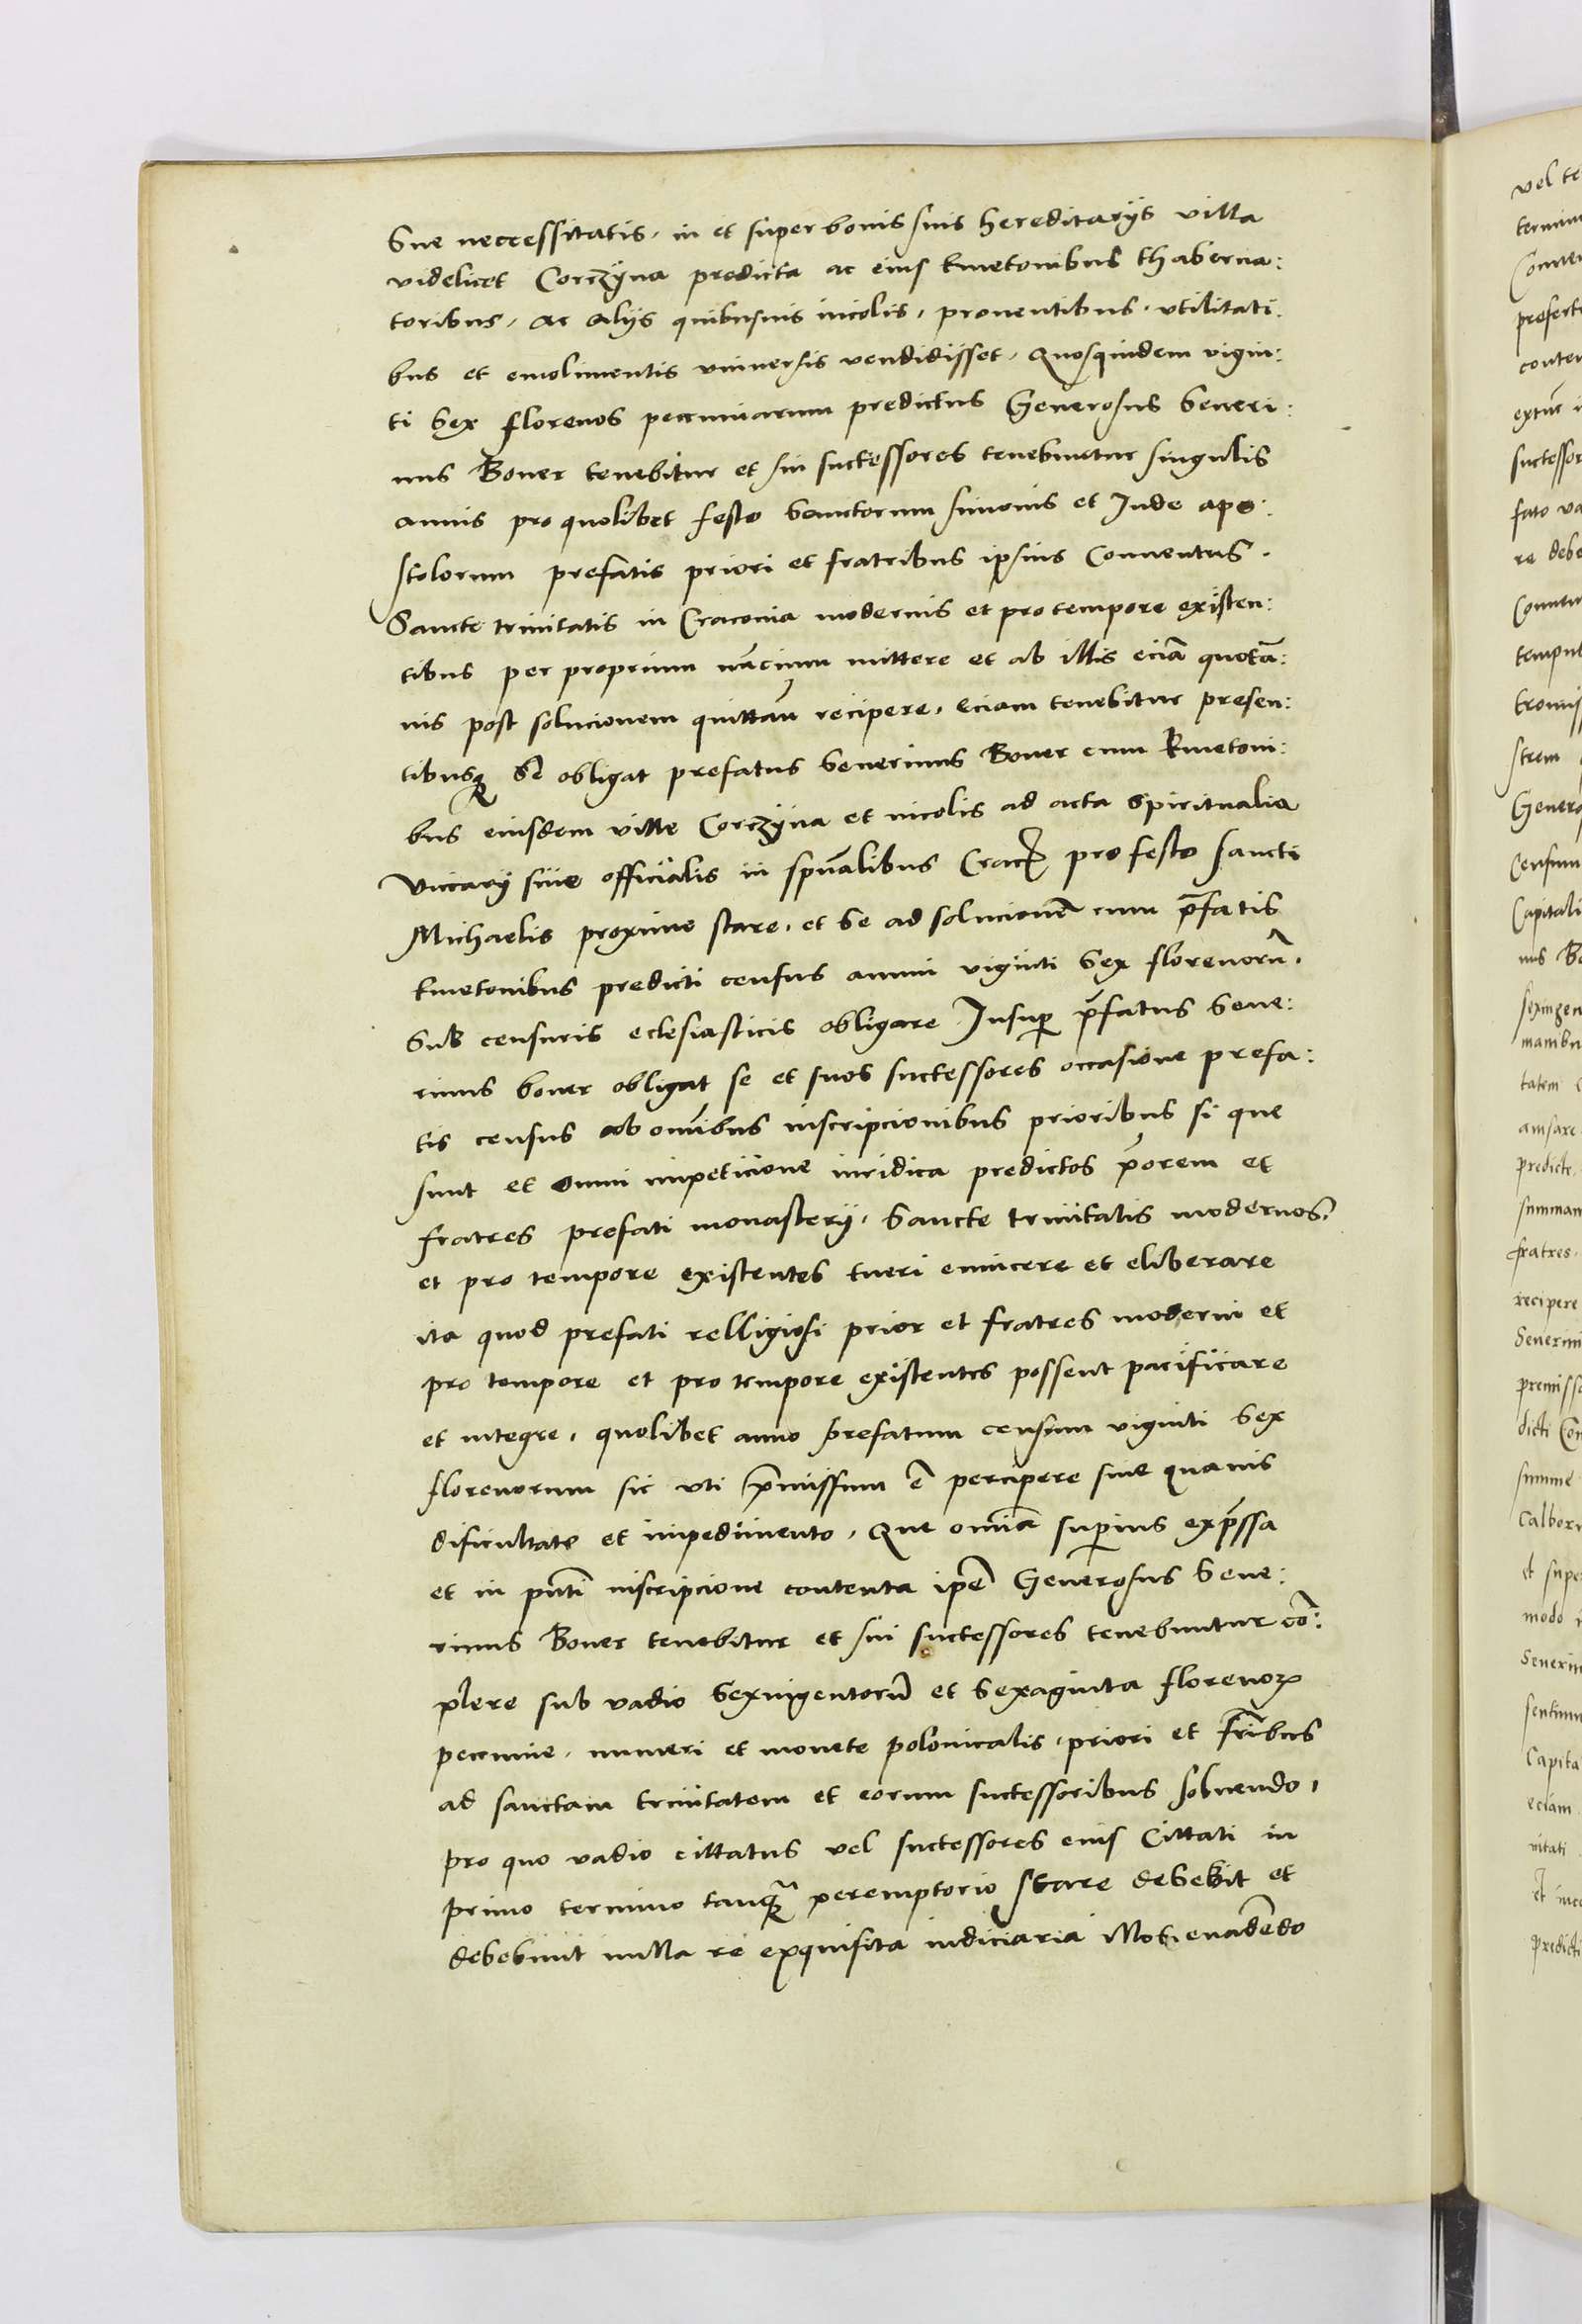 Sue necessitatis, in et super bonis suis hereditarijs villa
videlicet Corczÿna predicta ac eius kmetonibus thaberna:
toribus, ac alijs quibusuis incolis, prouentibus, vtilitati:
bus et emolimentis vniuersis vendidisset, Quosquidem vigin:
ti Sex florenos pecuniarum predictus Generosus Seueri:
nus Boner tenebitur et sui successores tenebuntur singulis
annis pro quolibet festo Sanctorum Simonis et Jude apo:
stolorum prefatis priori et fratribus ipsius Conuentus.
Sancte trinitatis in Cracouia modernis et pro tempore existen:
tibus per proprium nũcium mittere et ab illis eciã quotã:
nis post solucionem quittam̃ recipere, eciam tenebitur presen:
tibusq̃ Se obligat prefatus Seuerinus Boner cum kmetoni:
bus eiusdem ville Corczÿna et incolis ad acta Spiritualia
Vicarij siue officialis in spũalibus Crac̃ pro festo sancti
Michaelis proxime stare, et Se ad solucionẽ cum p̃fatis
kmetonibus predicti census annui viginti Sex florenorũ,
Sub censuris eclesiasticis obligare. Insup̱ p̃fatus Seue:
rinus boner obligat se et suos successores occasione prefa:
tis census ab om̃ibus inscripcionibus prioribus si que
sunt et omni impeticione iuridica predictos p̃orem et
fratres prefati monasterij, Sancte trinitatis modernos,
et pro tempore existentes tueri euincere et eliberare
ita quod prefati relligiosi prior et fratres moderni et
pro tempore et pro tempore existentes possent pacificare
et integre, quolibet anno prefatum censum viginti Sex
florenorum sic vti p̃missum ẽ percipere sine quauis
dificultate et impedimento, Que om̃ia sup̱ius exp̃ssa
et in pñti inscripcione contenta ip̃e Generosus Seue:
rinus Boner tenebitur et sui successores tenebuntur cõ:
plere sub vadio Sexingentorũ et Sexaginta florenoꝝ
pecunie, numeri et monete polonicalis, priori et fr̃ibus
ad sanctam trinitatem et eorum successoribus soluendo,
pro quo vadio cittatus vel successores eius Cittati in
primo termino tanq̃ peremptorio stare debebit et
debebunt nulla re exquisita iudiciaria illos euadẽdo